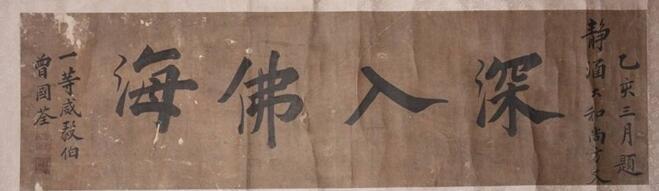 乙亥三月題
静涵大和尚方丈
深入佛海
一等威毅伯
曾國荃